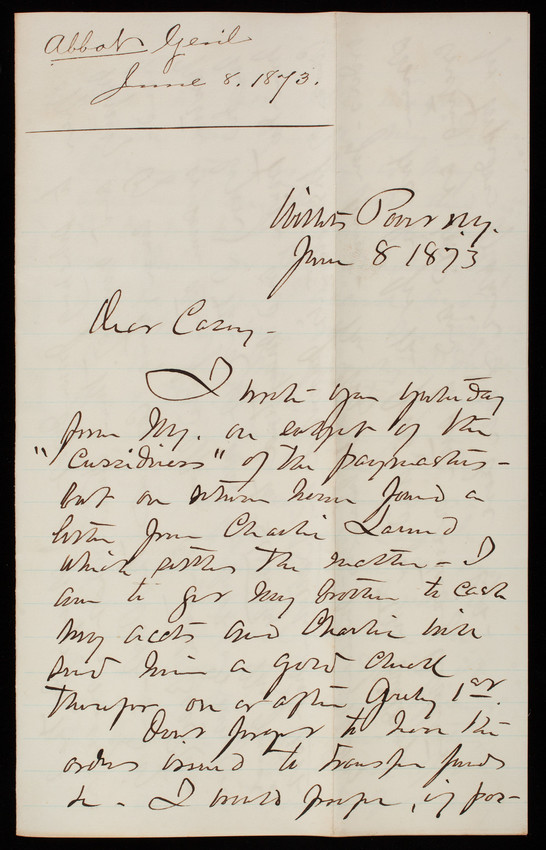 Abbot Genl
June 8. 1873.
Willets Point N.Y.
June 8 1873
Dear Casey -
I wrote you yesterday
from N.Y. on subject of the
"Cussidness" of the paymasters -
but on return home found a
letter from Charlie Larned
which settles the matter - I
am to get my brother to cash
my accts and Charlie will
send him a gold check
therefor on or after July 1st.
Dont forget to have the
orders issued to transfer funds
&c - I would prefer, if pos-